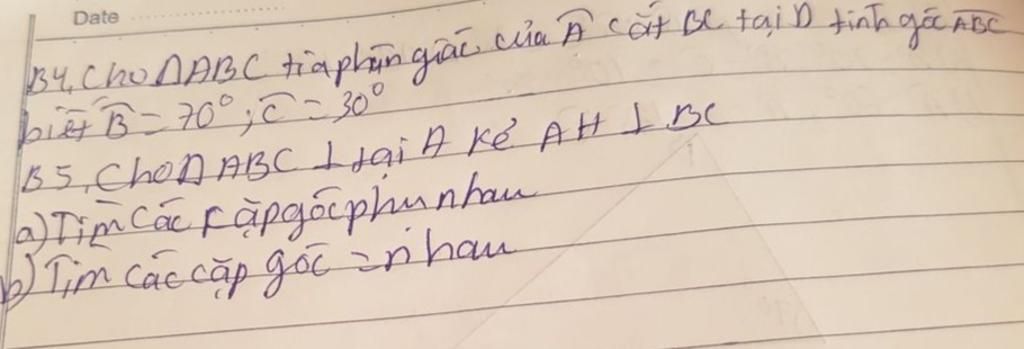 Date
B4, Cho ΔABC tia phân giác của Â cắt BC tại D tính góc ABC
biết B̂ = 70°; Ĉ = 30°
B5, Cho Δ ABC ⊥ tại A kẻ AH ⊥ BC
a) Tìm các cặp góc phụ nhau
b) Tìm các cặp góc = nhau